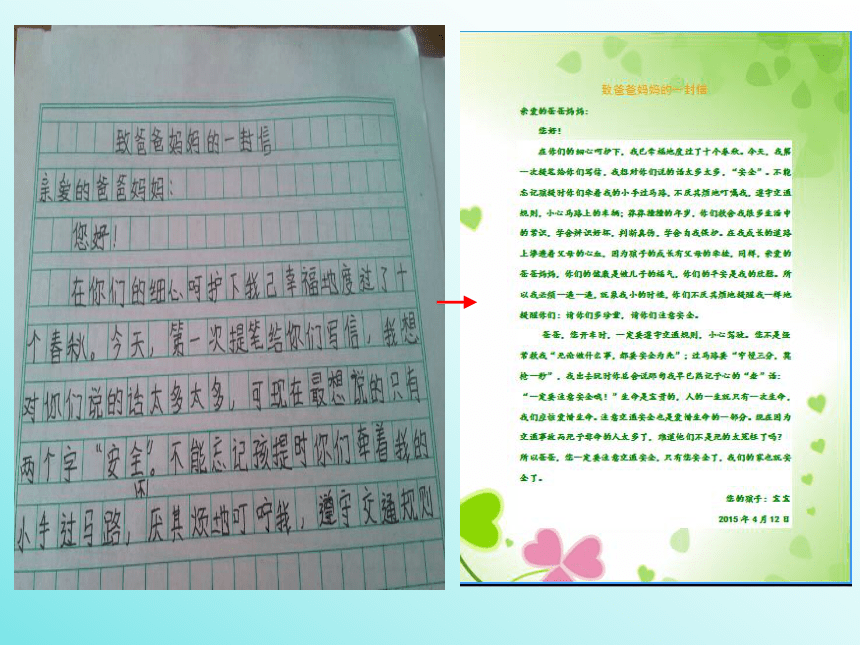 致爸爸妈妈的一封信
亲爱的爸爸妈妈：
您好！
在你们的细心呵护下我已幸福地度过了十
个春秋。今天，第一次提笔给你们写信，我想
对你们说的话太多太多，可现在最想说的只有
两个字“安全”。不能忘记孩提时你们牵着我的
小手过马路，不厌其烦地叮咛我，遵守交通规则
致爸爸妈妈的一封信
亲爱的爸爸妈妈：
您好！
在你们的细心呵护下，我已幸福地度过了十个春秋。今天，我第
一次提笔给你们写信，我想对你们说的话太多太多，“安全”。不能
忘记孩提时你们牵着我的小手过马路，不厌其烦地叮嘱我，遵守交通
规则，小心马路上的车辆；莽莽撞撞的年岁，你们教会我很多生活中
的常识，学会辨识好坏，判断真伪，学会自我保护。在我成长的道路
上渗透着父母的心血，因为孩子的成长有父母的牵挂，同样，亲爱的
爸爸妈妈，你们的健康是做儿子的福气，你们的平安是我的欣慰。所
以我必须一遍一遍，就象我小的时候，你们不厌其烦地提醒我一样地
提醒你们：请你们多珍重，请你们注意安全。
爸爸，您开车时，一定要遵守交通规则，小心驾驶。您不是经
常教我“无论做什么事，都要安全为先”；过马路要“宁慢三分，莫
抢一秒”，我出去玩时你总会说那句我早已熟记于心的“老”话：
“一定要注意安全哦！”生命是宝贵的，人的一生就只有一次生命，
我们应该爱惜生命。注意交通安全也是爱惜生命的一部分。现在因为
交通事故而死于非命的人太多了，难道他们不是死的太冤枉了吗？
所以爸爸，您一定要注意交通安全，只有您安全了，我们的家也就安
全了。
您的孩子：宝宝
2015年4月12日